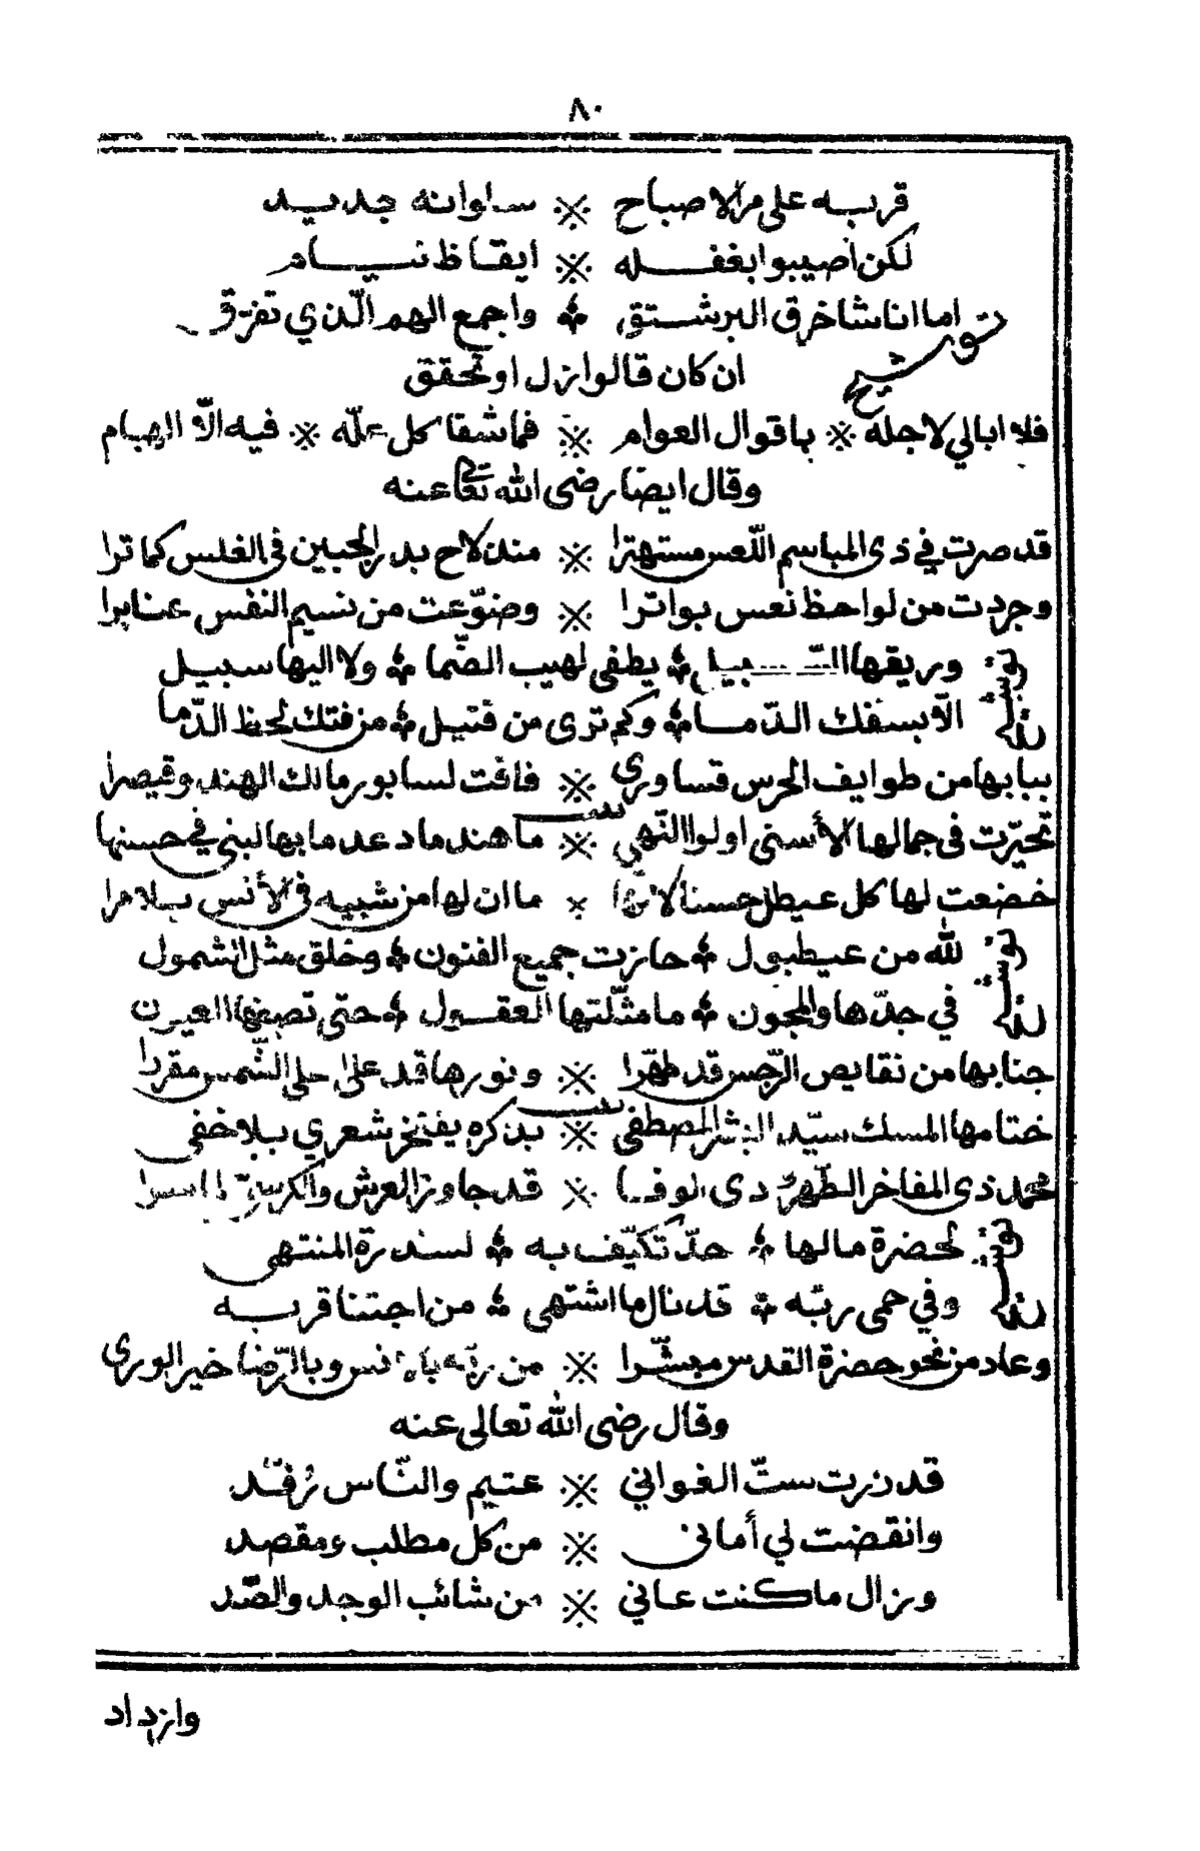 ٨٠
قربه على مر الاصباح ※ سلوانه جديد
لكن اصيبوا بغفله ※ ايقاظ نيام
توشيح اما انا شاخرق البرشتق ※ واجمع الهم الّذي تفرق
ان كان قالوا زل او تحقق
فلا ابالي لاجله ※ باقوال العوام ※ فما شفا كل علّه ※ فيه الّا الهيام
وقال ايضا رضى الله تعالى عنه
قد صرت في ذى المباسم اللّعس مستهترا ※ منذ لاح بدر الجبين فى الغلس كما ترا
وجردت من لواحظ نعس بواترا ※ وضوّعت من نسيم النفس عنابرا
توشيح وريقها السّلسبيل ※ يطفى لهيب الضّما ※ ولا اليها سبيل
الّا بسفك الدّما ※ وكم ترى من قتيل ※ من فتك لحظ الدّما
ببابها من طوايف الحرس قساوري ※ فاقت لسابور مالك الهند وقيصرا
تحيّرت فى جمالها الأسنى اولوا النّهي ※ ما هند ما دعد ما بها لبنى في حسنها
خضعت لها كل عيطل حسنا ※ ما ان لها من شبيه فى الأنس بلا مرا
توشيح لله من عيطبول ※ حازت جميع الفنون ※ وخلق مثل الشمول
في جدّها والمجون ※ ما مثّلتها العقول ※ حتى تصفها العيون
جنابها من نقايص الرّجس قد طهّرا ※ ونورها قد علا على الشّمس مقررا
ختامها المسك سيّد البشر المصطفى ※ بذكره يفتخر شعري بلا خفى
محمد ذى المفاخر الطّهر ذى الوفا ※ قد جاوز العرش والكرسيّ
توشيح لحضرة مالها ※ حدّ تكيّف به ※ لسدرة المنتهى
وفي حمى ربّه ※ قد نال ما اشتهى ※ من اجتنا قربه
وعاد من نحو حضرة القدس مبشّرا ※ من ربّه بالانس وبالرّضا خير الورى
وقال رضى الله تعالى عنه
قد زرت ستّ الغواني ※ عتيم والنّاس رُقّد
وانقضت لي أمانى ※ من كل مطلب ومقصد
وزال ما كنت عاني ※ من شائب الوجد والصّد
وازداد